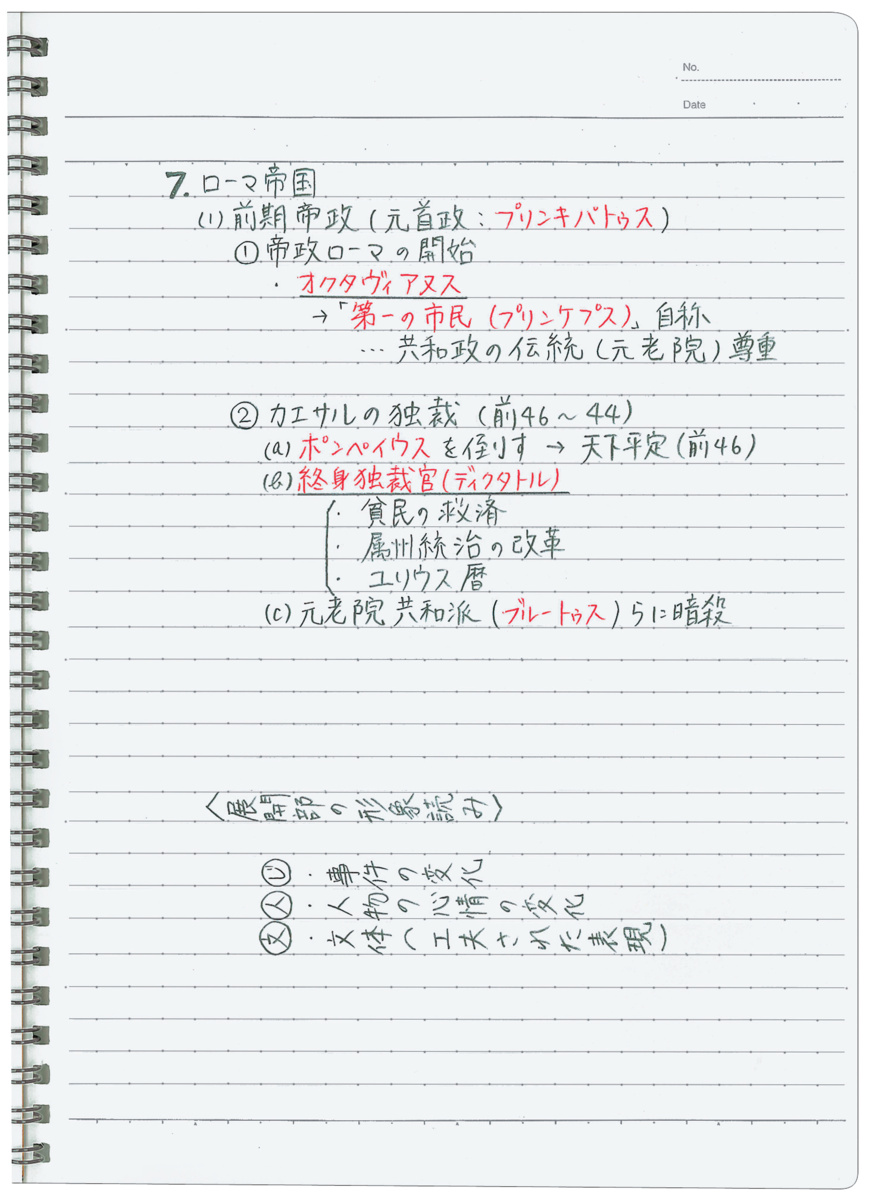 No.
Date
7. ローマ帝国
(1) 前期帝政(元首政:プリンキパトゥス)
① 帝政ローマの開始
・オクタヴィアヌス
→「第一の市民(プリンケプス)」自称
… 共和政の伝統(元老院)尊重
② カエサルの独裁(前46～44)
(a) ポンペイウスを倒りす → 天下平定(前46)
(b) 終身独裁官(ディクタトル)
・貧民の救済
・属州統治の改革
・ユリウス暦
(c) 元老院共和派(ブルートゥス)らに暗殺
〈展開部の形象読み〉
じ・事件の変化
人・人物の心情の変化
文・文体(工夫された表現)